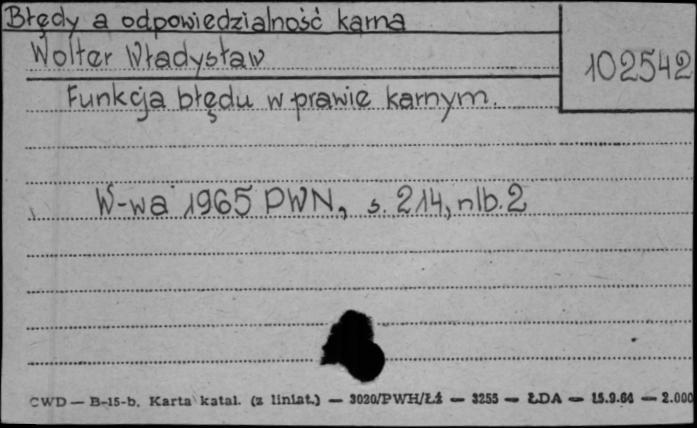 Błędy a odpowiedzialność karna
Wolter Władysław
102542
Funkcja błędu w prawie karnym.
W-wa 1965 PWN, s. 214, nlb. 2
CWD — B-15-b. Karta katal. (z liniat.) — 3020/PWH/Łź — 3255 — ŁDA — 15.9.64 — 2.000